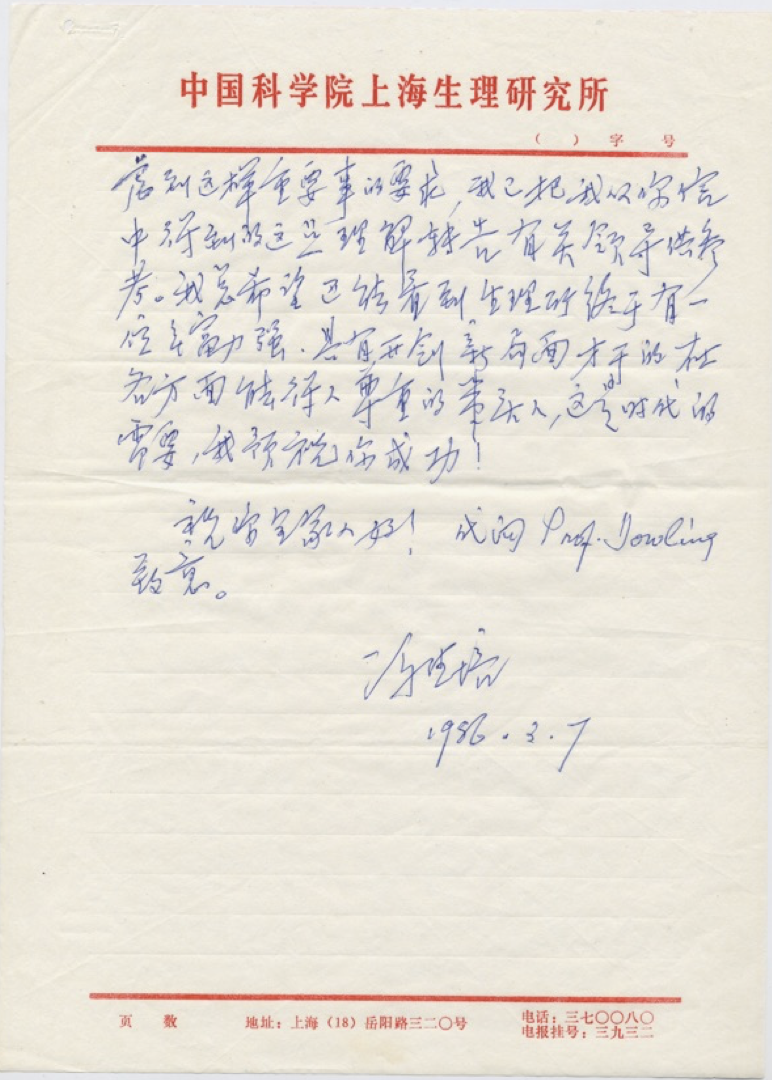 中国科学院上海生理研究所
（ ）字 号
到这样重要事的要求，我已把我从你信
中得到的这些理解转告有关领导供参
考。我总希望还能看到生理所终于有一
位年富力强、具有开创新局面才干的在
各方面能得人尊重的带头人，这是时代的
需要，我预祝你成功！
祝你全家人好！ 代向 Prof. Dowling
致意。
冯德培
1986.3.7
页 数
地址：上海（18）岳阳路三二〇号
电话：三七〇〇八〇
电报挂号：三九三二